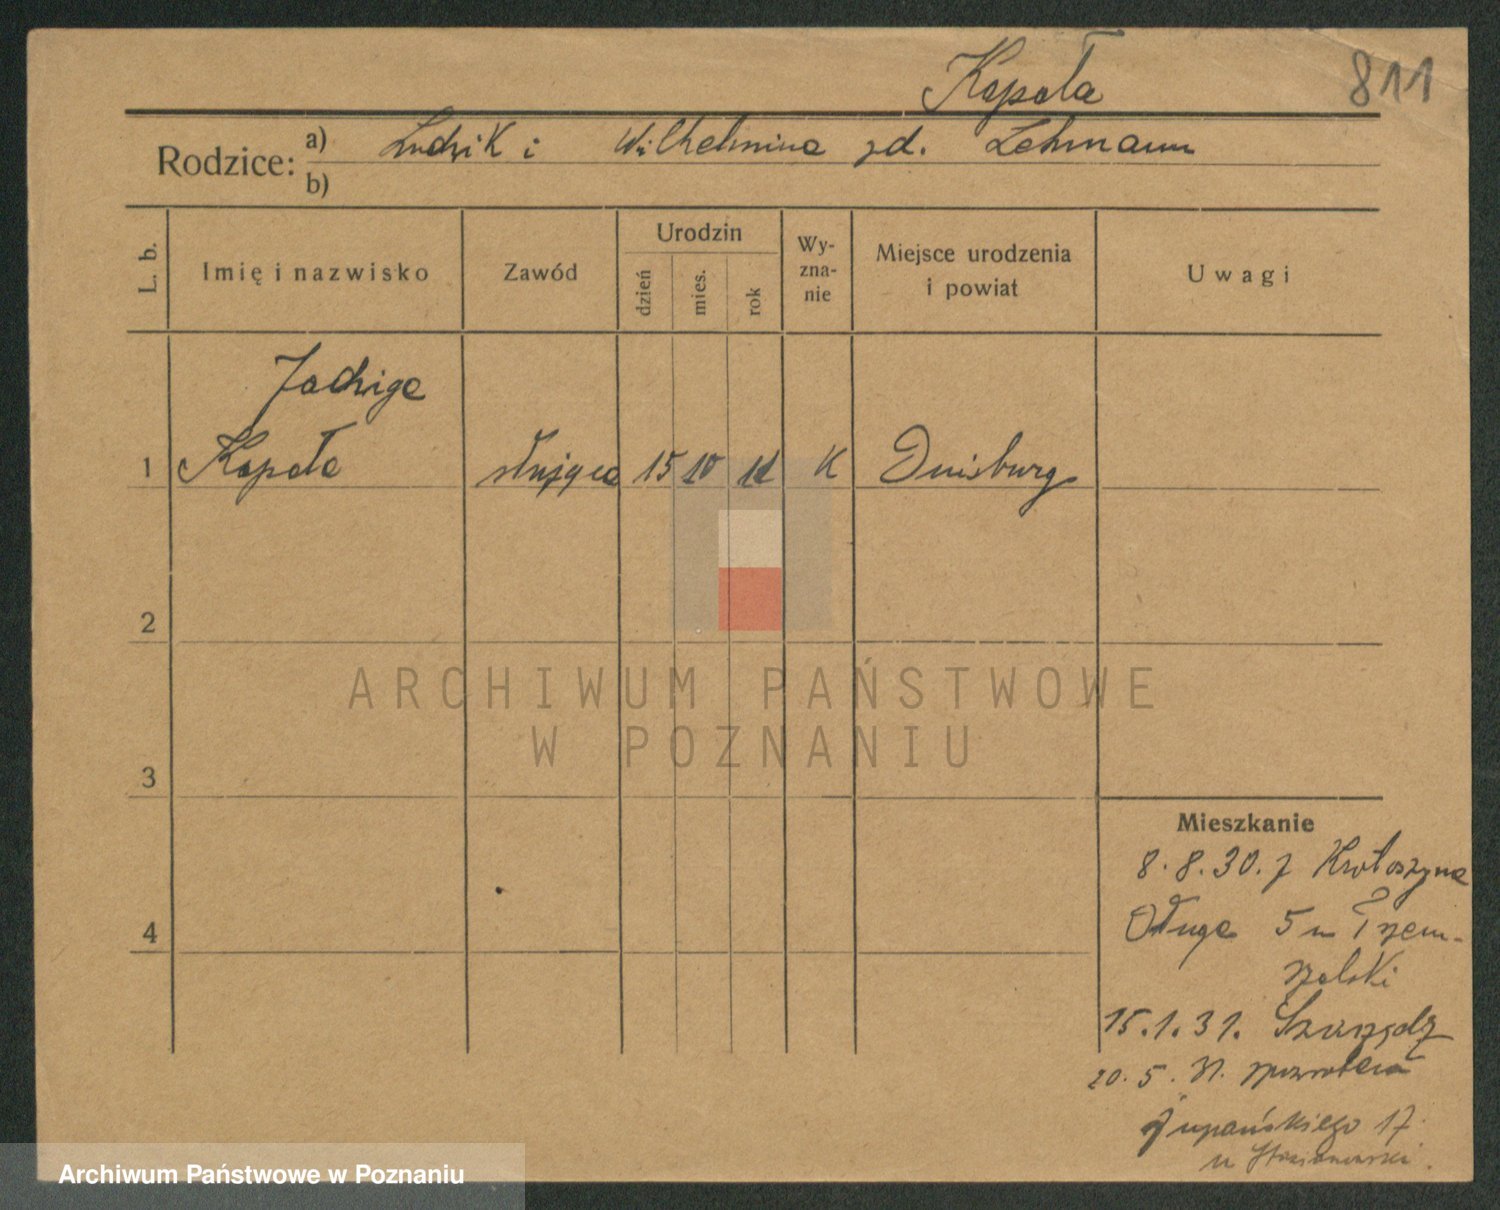 Kapała 811
Rodzice: a) Ludwik i Wilhelmina zd. Lehmann
b)
L. b. Imię i nazwisko Zawód Urodzin dzień mies. rok Wy-zna-nie Miejsce urodzenia i powiat Uwagi
Jadwiga
1 Kapała służąca 15 10 11 K Duisburg
2
3
4
Mieszkanie
8.8.30. z Krotoszyna
Długa 5 u Trzem-
żalski
15.1.31.
20.5.31. zpowrotem
Żupańskiego 17
u
ARCHIWUM PAŃSTWOWE
W POZNANIU
Archiwum Państwowe w Poznaniu